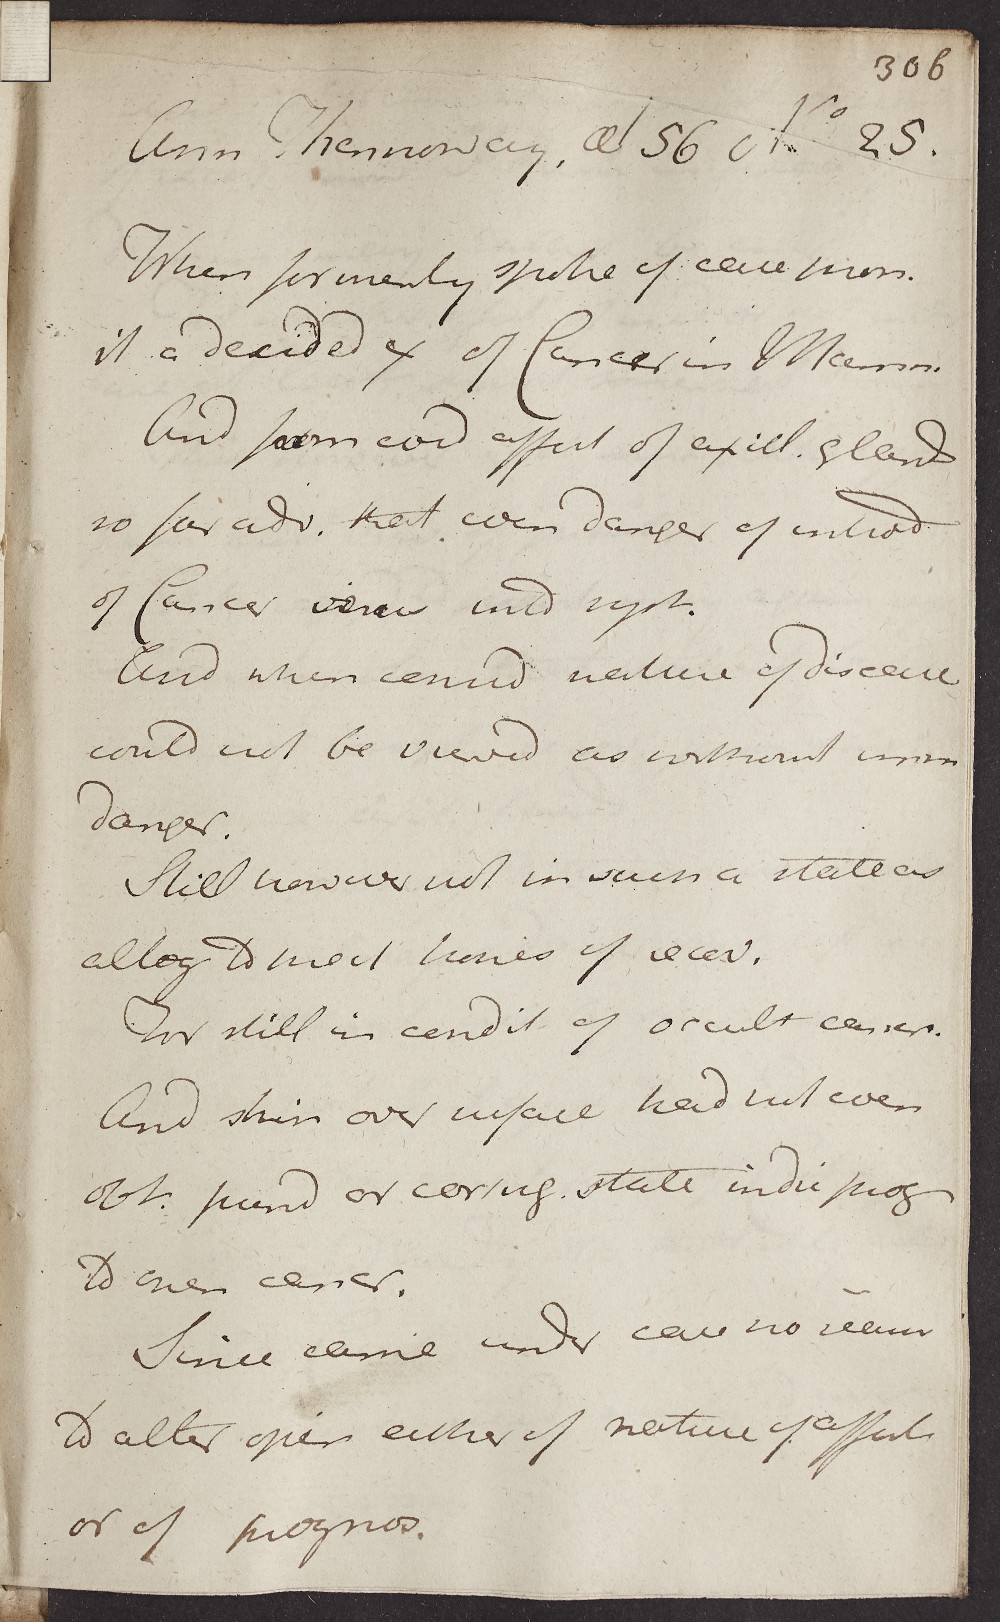 306
Ann Thennoway, æt 56 No 25.
When formerly spoke of case pron.
it a decided ex of Cancer in Mamm.
And from cord affect of axill. gland
so far adv. that even danger of introd
of Cancer virus into syst.
And when consid nature of disease
could not be viewed as without imm
danger.
Still however not in such a state as
alltog to meet hopes of recov.
For still in condit of occult cancer.
And skin over surface had not even
obt. pursd or corrug. state indic prog
to open cancer.
Since came under care no reason
to alter opin either of nature of affect
or of prognos.